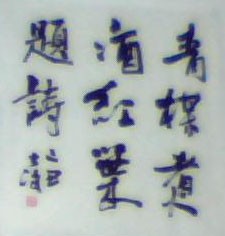 青楳煮
酒紅葉
題詩